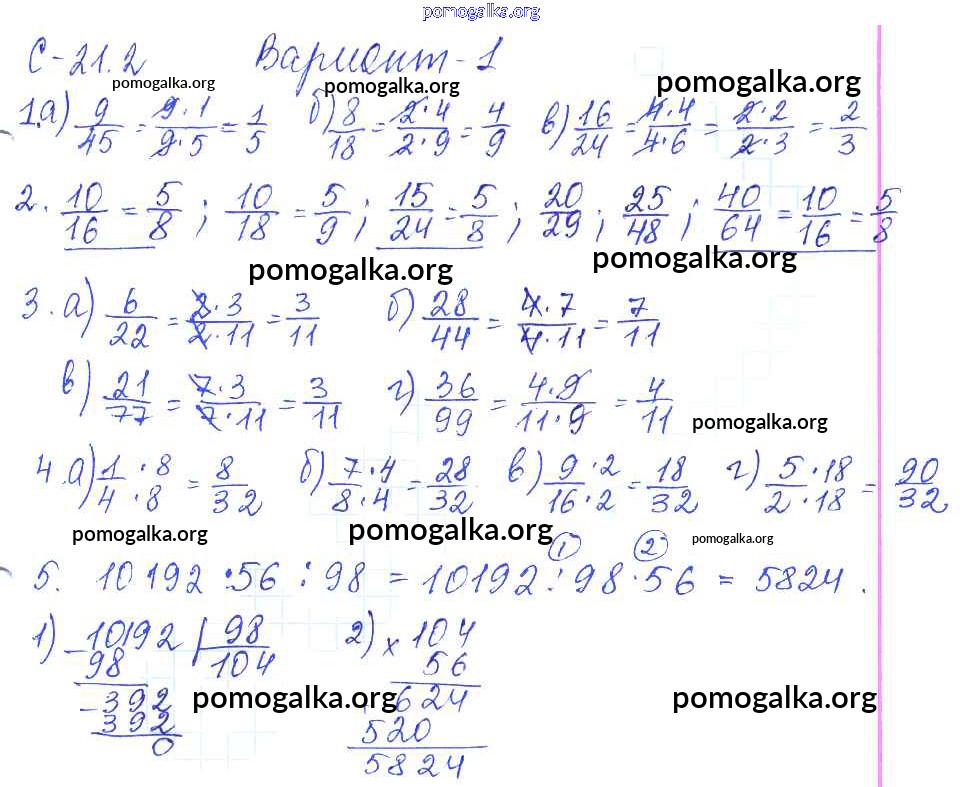 pomogalka.org
С-21.2 Вариант-1
pomogalka.org pomogalka.org pomogalka.org
1.а) 9/45 = 9·1/9·5 = 1/5 б) 8/18 = 2·4/2·9 = 4/9 в) 16/24 = 4·4/4·6 = 2·2/2·3 = 2/3
2. 10/16 = 5/8 ; 10/18 = 5/9 ; 15/24 = 5/8 ; 20/29 ; 25/48 ; 40/64 = 10/16 = 5/8
pomogalka.org pomogalka.org
3. а) 6/22 = 2·3/2·11 = 3/11 б) 28/44 = 4·7/4·11 = 7/11
в) 21/77 = 7·3/7·11 = 3/11 г) 36/99 = 4·9/11·9 = 4/11
pomogalka.org
4.а) 1·8/4·8 = 8/32 б) 7·4/8·4 = 28/32 в) 9·2/16·2 = 18/32 г) 5·18/2·18 = 90/32
pomogalka.org pomogalka.org pomogalka.org
1 2
5. 10192 : 56 : 98 = 10192 : 98 · 56 = 5824 .
1) - 10192 | 98 2) × 104
98 104 56
- 392 624
392 520
0 5824
pomogalka.org pomogalka.org